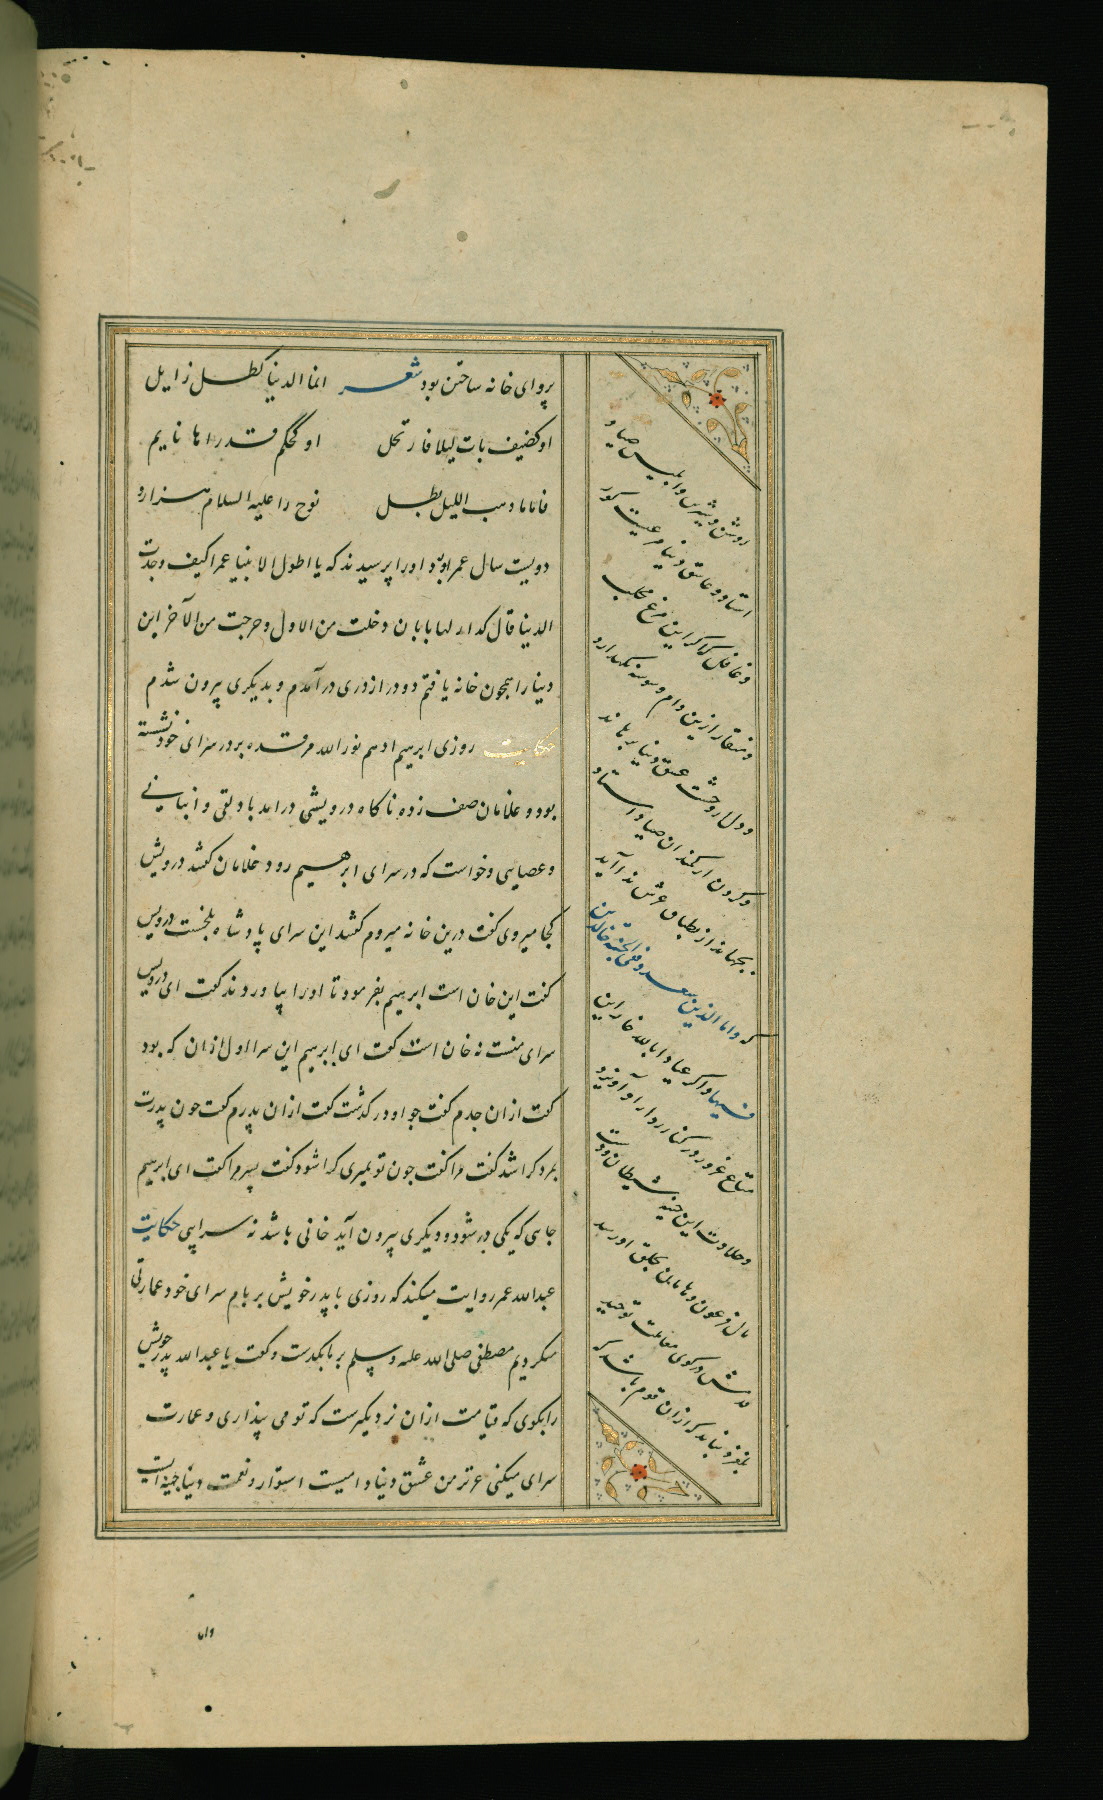 پروای خانه ساختن بود شعر انما الدنیا کظل زایل
او کضیف بات لیلا فارتحل او کحکم قدر اها نایم
فاذا ما ذهب اللیل بطل نوح را علیه السلام هزار و
دویست سال عمر بود او را پرسیدند که یا اطول الانبیا عمرا کیف وجدت
الدنیا قال کدار لها بابان دخلت من الاول و خرجت من الآخر این
دنیا را همچون خانه یافتم دو در از دری درآمدم و بدیگری بیرون شدم
حکایت روزی ابرهیم ادهم نور الله مرقده بر در سرای خود نشسته
بود و غلامان صف زده ناکاه درویشی درامد با دلقی و انبانی
و عصایی و خواست که در سرای ابرهیم رود غلامان کفتند درویش
کجا میروی کفت درین خانه میروم کفتند این سرای پادشاه بلخست درویش
کفت این خان است ابرهیم بفرمود تا اورا بیاوردند کفت ای درویش
سرای منست نه خان است کفت ای ابرهیم این سرا اول ازان که بود
کفت ازان جدم کفت جو او درکذشت کفت ازان پدرم کفت جون پدرت
بمرد کرا شد کفت مرا کفت جون تو بمیری کرا شود کفت پسرم را کفت ای ابرهیم
جای که یکی در شود و دیکری بیرون آید خانی باشد نه سرایی حکایت
عبدالله عمر روایت میکند که روزی با پدر خویش بر بام سرای خود عمارتی
میکردیم مصطفی صلی الله علیه وسلم بر ما بکذشت و کفت یا عبدالله پدر خویش
را بکوی که قیامت ازان نزدیکترست که تو می پنداری و عمارت
سرای میکنی عزتر من عشق دنیا دامیست استوار و نعمت دنیا جینه ایست
روشن و شیرین و ابلیس صیاد
استاد و عاشق دنیا مرغیست کور
و غافل کراکر این مرغ مخلب
و منقار ازین دام و سوسه نکهدارد
و دل از وحشت عشق دنیا برهاند
و کردن از کمند ان صیاد استاد
بجهاند از بطباق عرش ندا آید
که و اما الذین سعدوا ففی الجنة خالدین
فیها و اکر عیاذا بالله خار این
متاع غرور در کنار او آویزد
و حلاوت این جینه شیطان دوست
مال فرعون و هامان بحلق او رسد
قدمش در کوی مقامت توحید
بلغزد نباید که ازان قوم باشد که
واما